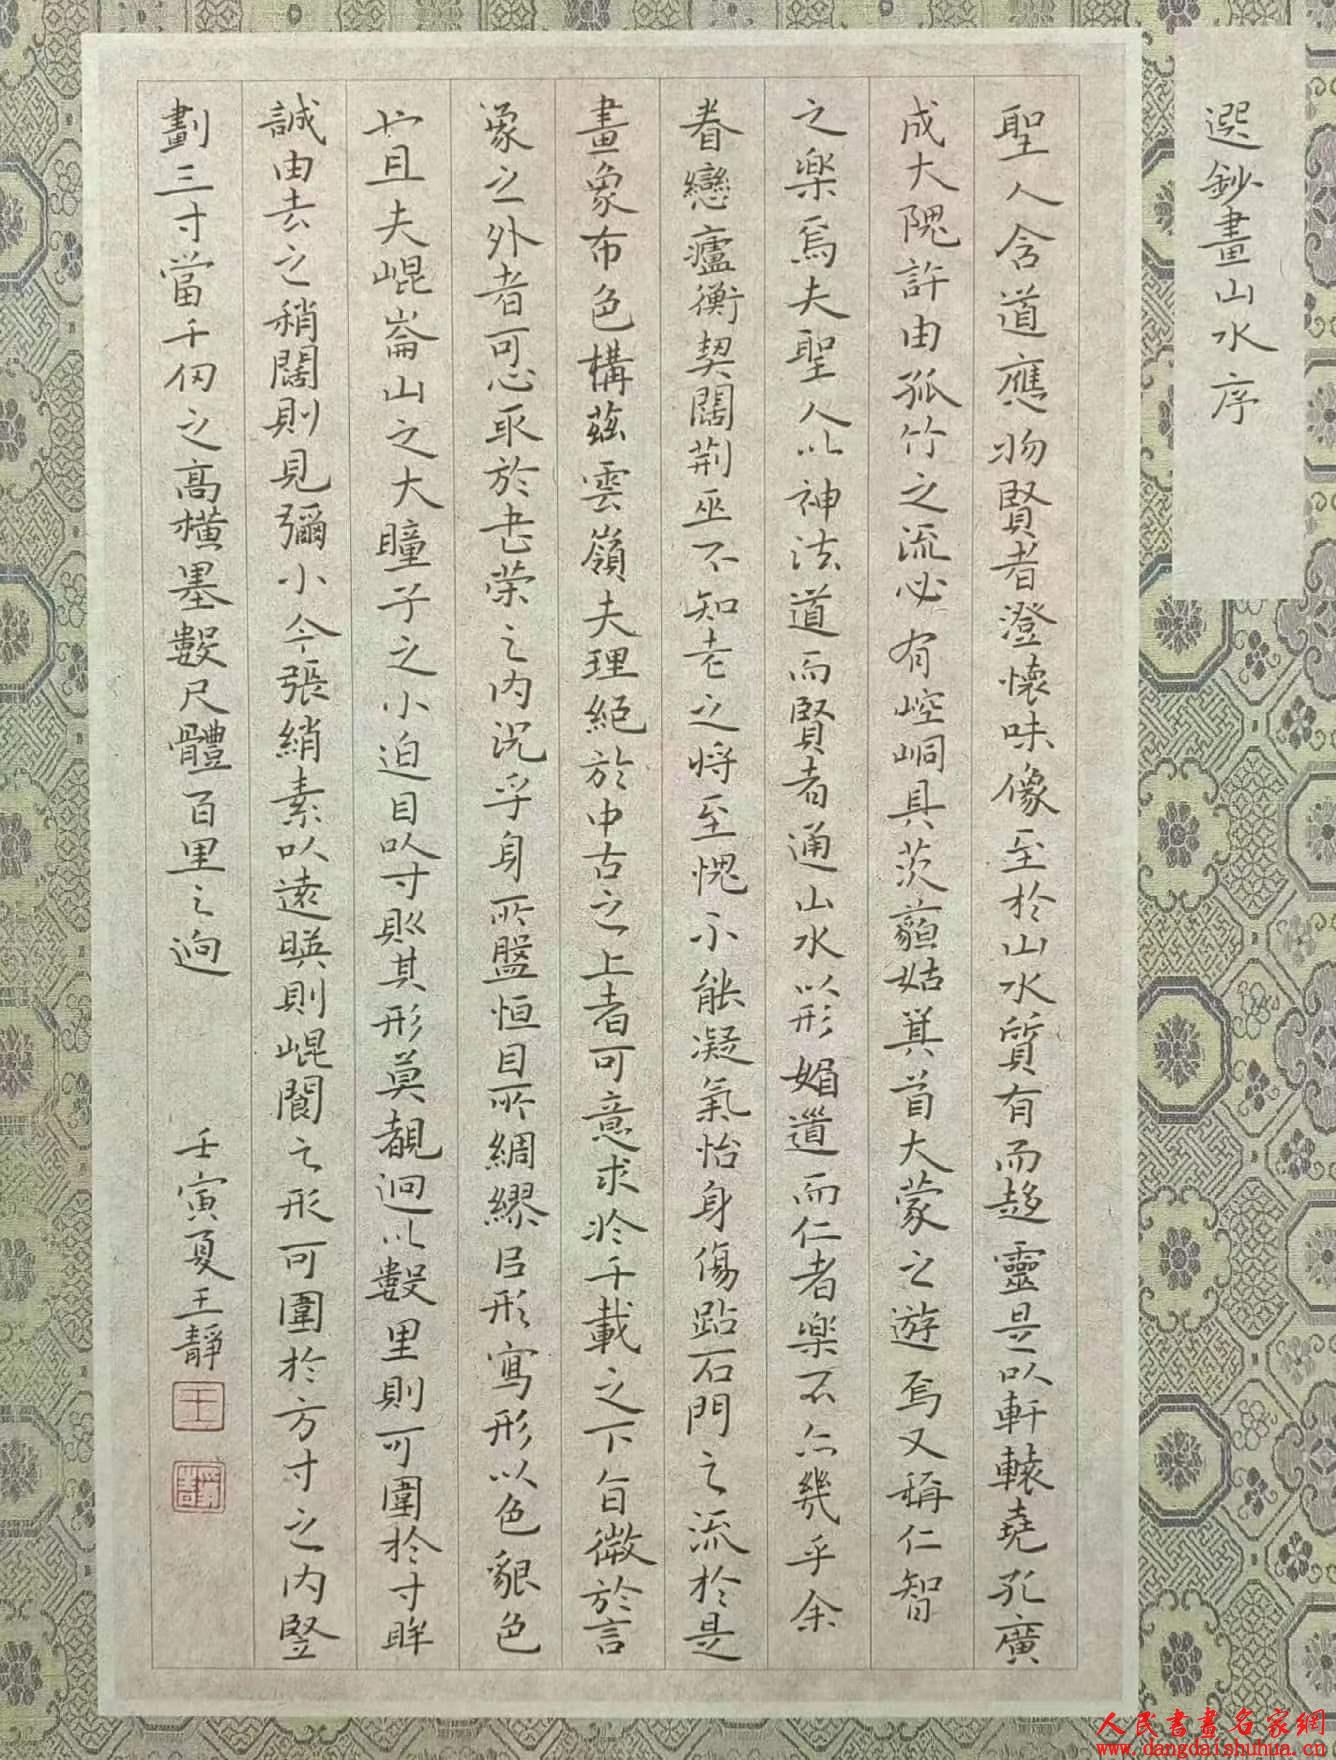 選鈔畫山水序
聖人含道應物賢者澄懷味像至於山水質有而趍靈是以軒轅堯孔廣
成大隗許由孤竹之流必有崆峒具茨藐姑箕首大蒙之遊焉又稱仁智
之樂焉夫聖人以神法道而賢者通山水以形媚道而仁者樂不亦幾乎余
眷戀廬衡契闊荊巫不知老之將至愧不能凝氣怡身傷跕石門之流於是
畫象布色構茲雲嶺夫理絕於中古之上者可意求於千載之下旨微於言
象之外者可心取於書策之內況乎身所盤恒目所綢繆以形寫形以色貌色
也且夫崐崙山之大瞳子之小迫目以寸則其形莫覩迥以數里則可圍於寸眸
誠由去之稍闊則見彌小今張綃素以遠暎則崐閬之形可圍於方寸之內豎
劃三寸當千仞之高橫墨數尺體百里之迥
壬寅夏王靜
王
靜
人民書畫名家網
www.dangdaishuhua.com